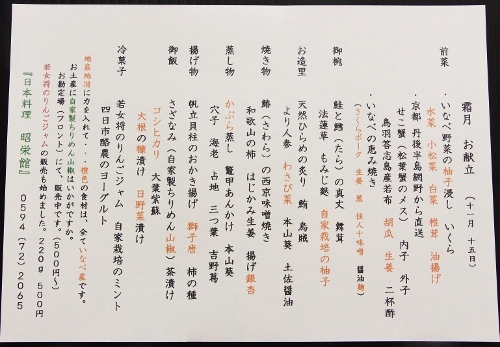 霜月　お献立（十一月　十五日）
前菜
・いなべ野菜の柚子浸し　いくら
水菜　小松菜　白菜　椎茸　油揚げ
・京都　丹後半島網野から直送
せこ蟹（松葉蟹のメス）　内子　外子
鳥羽答志島産若布　胡瓜　生姜　二杯酢
・いなべの恵み焼き
（さくらポーク　生姜　葱　住人十味噌　醤油麹）
御椀　鮭と鱈（たら）の真丈　舞茸
法蓮草　もみじ麩　自家栽培の柚子
お造里　天然ひらめの炙り　鮪　烏賊
より人参　わさび菜　本山葵　土佐醤油
焼き物　鰆（さわら）の西京味噌焼き
和歌山の柿　はじかみ生姜　揚げ銀杏
蒸し物　かぶら蒸し　鼈甲あんかけ　本山葵
穴子　海老　占地　三つ葉　吉野葛
揚げ物　帆立貝柱のおかき揚げ　獅子唐　柿の種
御飯　さざなみ（自家製ちりめん山椒）茶漬け
コシヒカリ　大葉紫蘇
大根の糠漬け　日野菜漬け
冷菓子　若女将のりんごジャム　自家栽培のミント
四日市酪農のヨーグルト
地産地消に力を入れて・・・橙色の食材は、全ていなべ産です。
お土産に自家製ちりめん山椒はいかがですか。
お勘定場（フロント）にて、販売中です。（500円〜）
若女将のりんごジャムの販売も始めました。220g　500円
『日本料理　昭栄館』　0594（72）2065